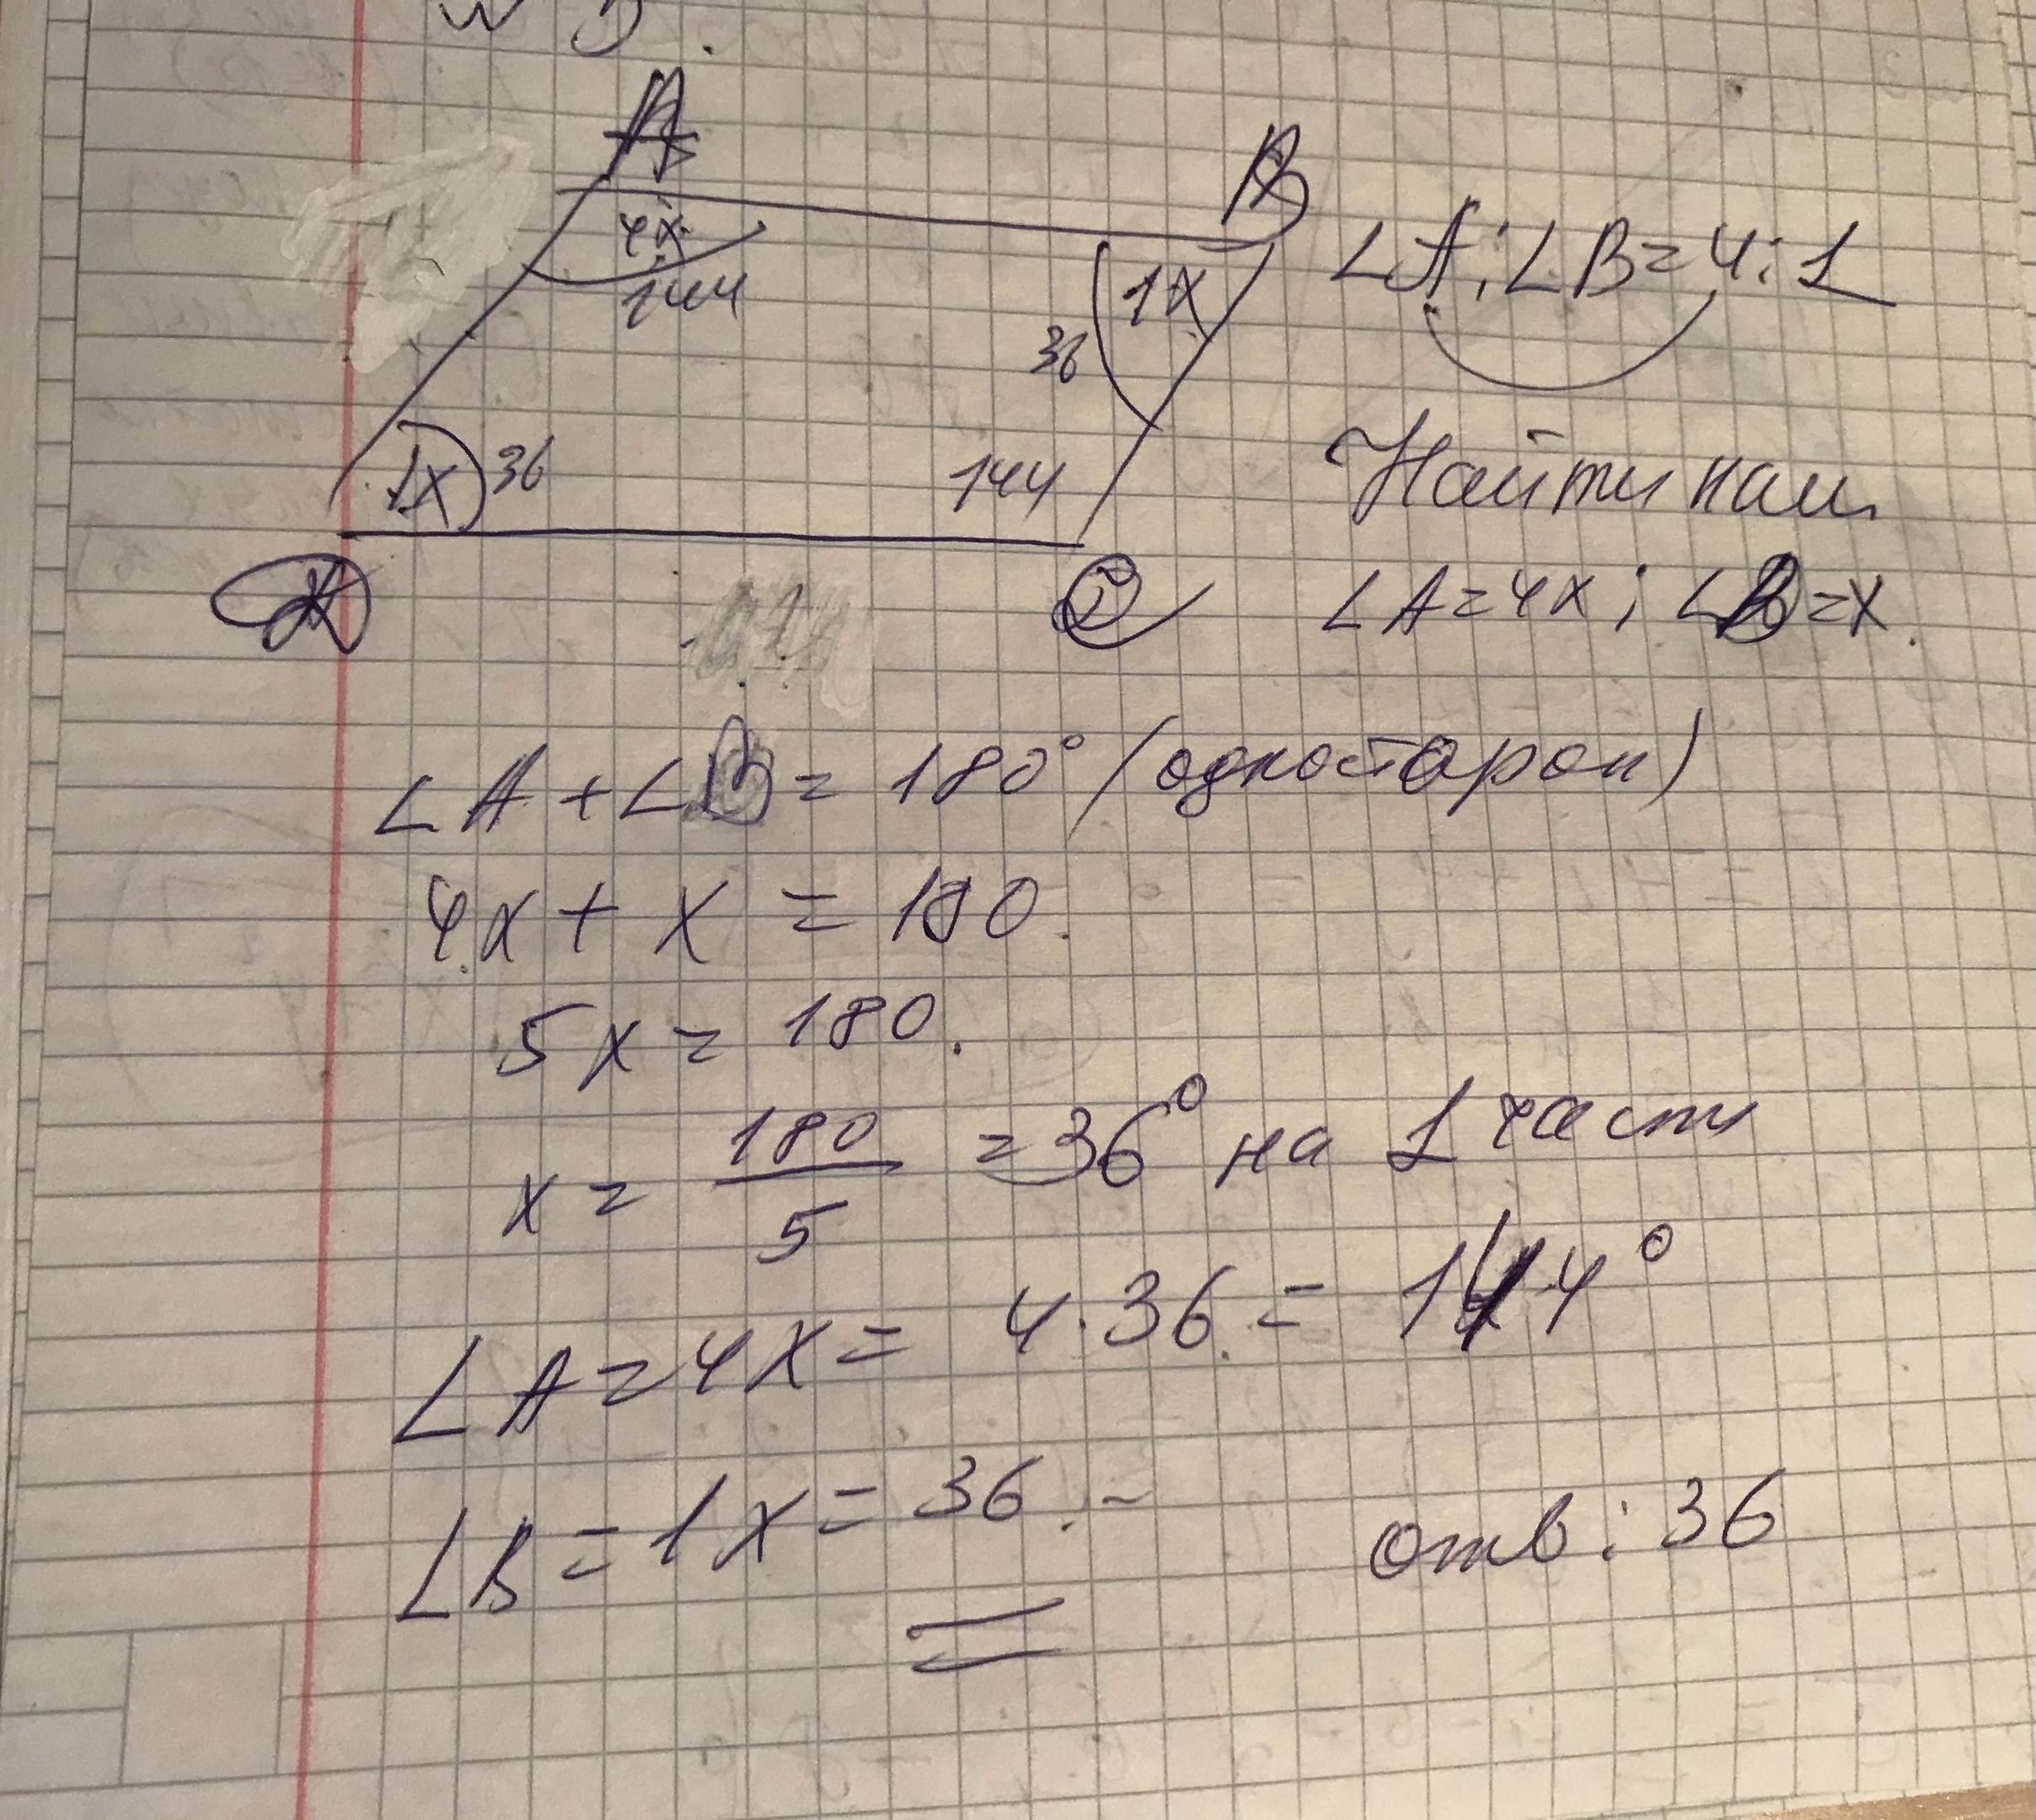 A
B
4x
144
1x
36
∠A:∠B=4:1
1x
36
144
Найти наи
D
C
∠A=4x; ∠B=x.
∠A+∠B=180° (одностарон)
4x+x=180.
5x=180.
x=180/5=36° на 1 части
∠A=4x=4·36=144°
∠B=1x=36.-
отв: 36